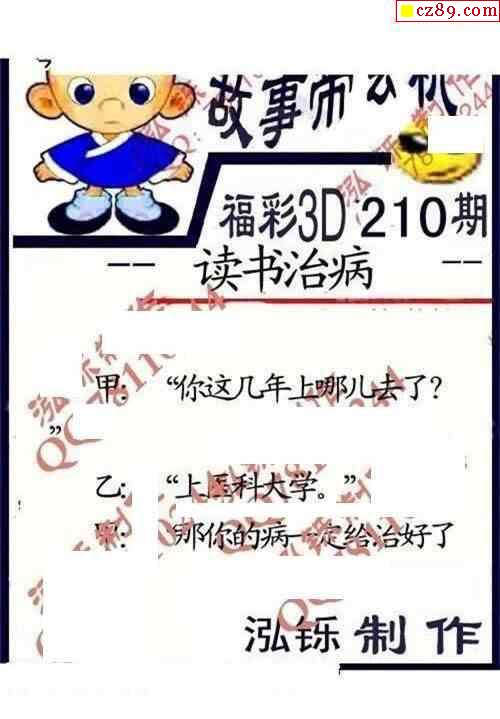 cz89.com
故事师玄机
福彩3D 210期
-- 读书治病 --
甲: “你这几年上哪儿去了?
”
乙: “上医科大学。”
甲: 那你的病一定给治好了
泓铄 制 作